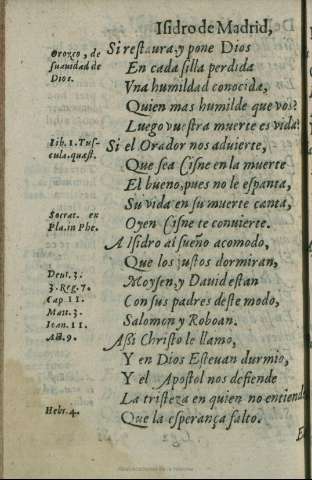 Isidro de Madrid,
Orozco, de
suauidad de
Dios.
Si restaura, y pone Dios
En cada silla perdida
Vna humildad conocida,
Quien mas humilde que vos?
Luego vuestra muerte es vida?
lib. 1. Tus-
cula. quæst.
Si el Orador nos aduierte,
Que sea Cisne en la muerte
El bueno, pues no le espanta,
Su vida en su muerte canta,
Socrat. ex
Pla. in Phe.
Oyen Cisne te conuierte.
A Isidro al sueño acomodo,
Que los justos dormiran,
Deut. 3.
3. Reg. 7.
Cap 11.
Matt. 3.
Ioan. 11.
Act. 9.
Moysen, y Dauid estan
Con sus padres deste modo,
Salomon, y Roboan.
Assi Christo le llamo,
Y en Dios Esteuan durmio,
Y el Apostol nos defiende
La tristeza en quien no entiende
Hebr. 4.
Que la esperança falto.